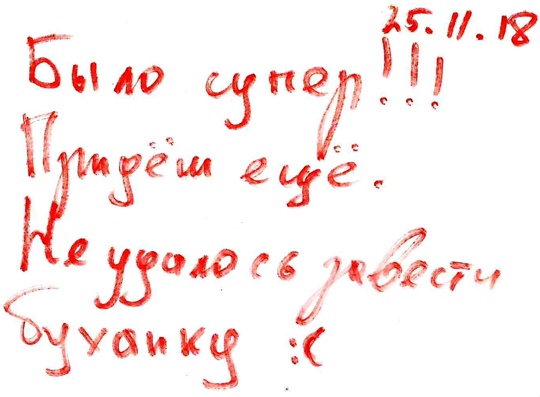 25.11.18
Было супер!!!
Придём ещё.
Не удалось завести
буханку :(